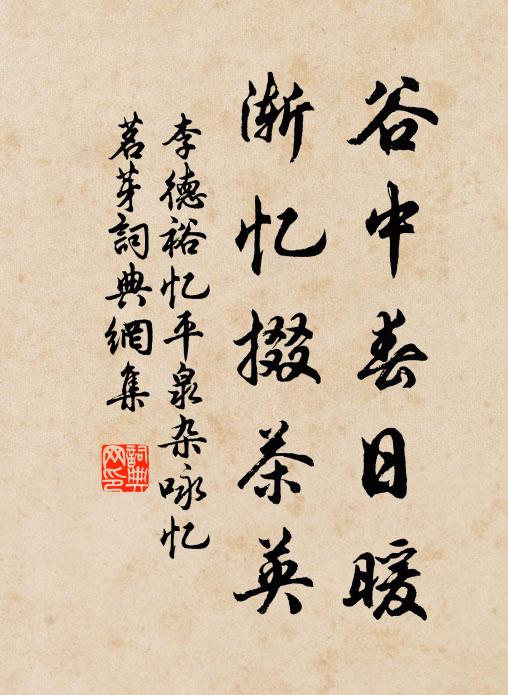 谷中春日暖
渐忆掇茶英
李德裕忆平泉杂咏忆
茗芽詞典網集
詞典
网印